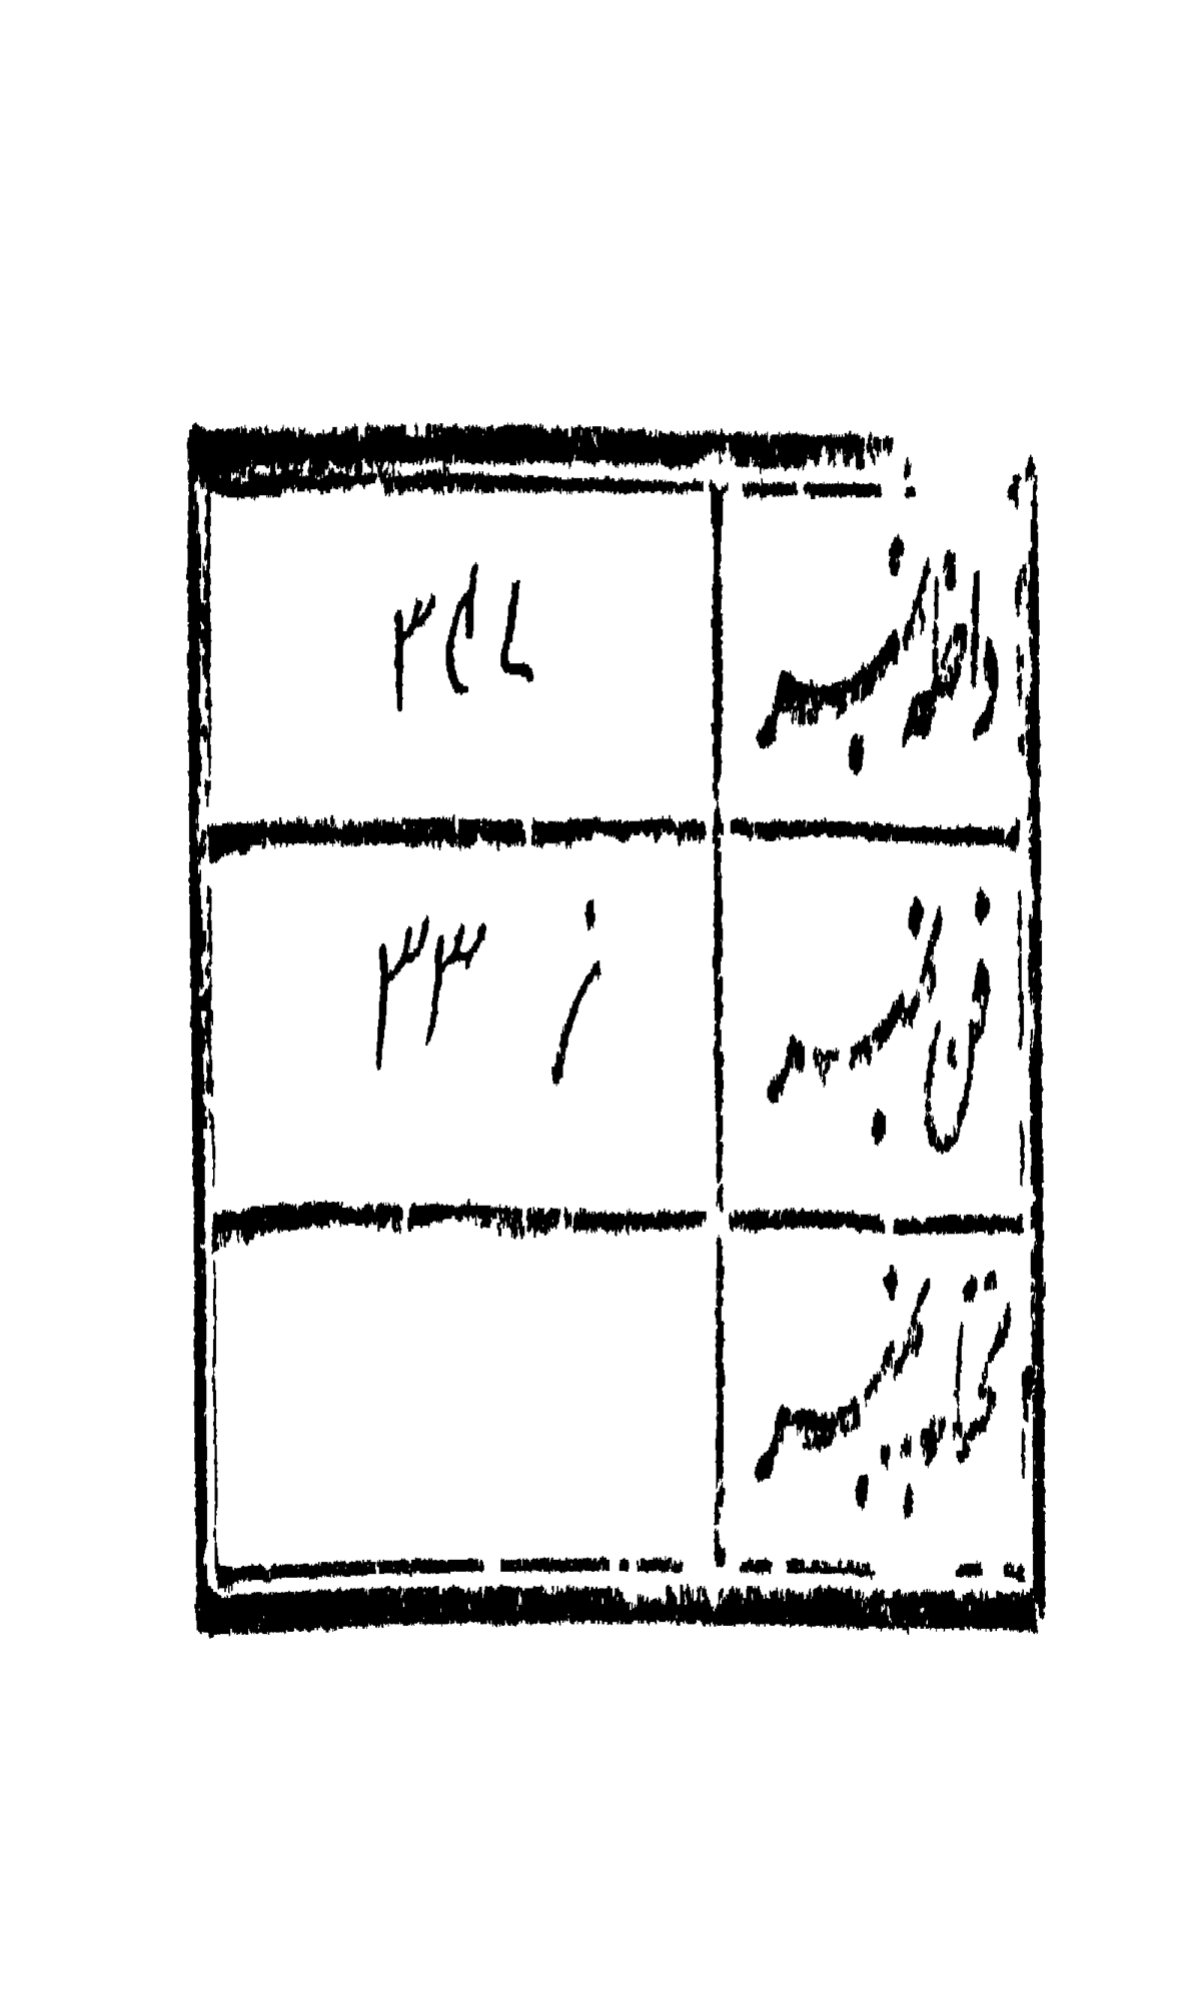 داخلہ نمبر
فن نمبر ز ۳۳
کتاب نمبر